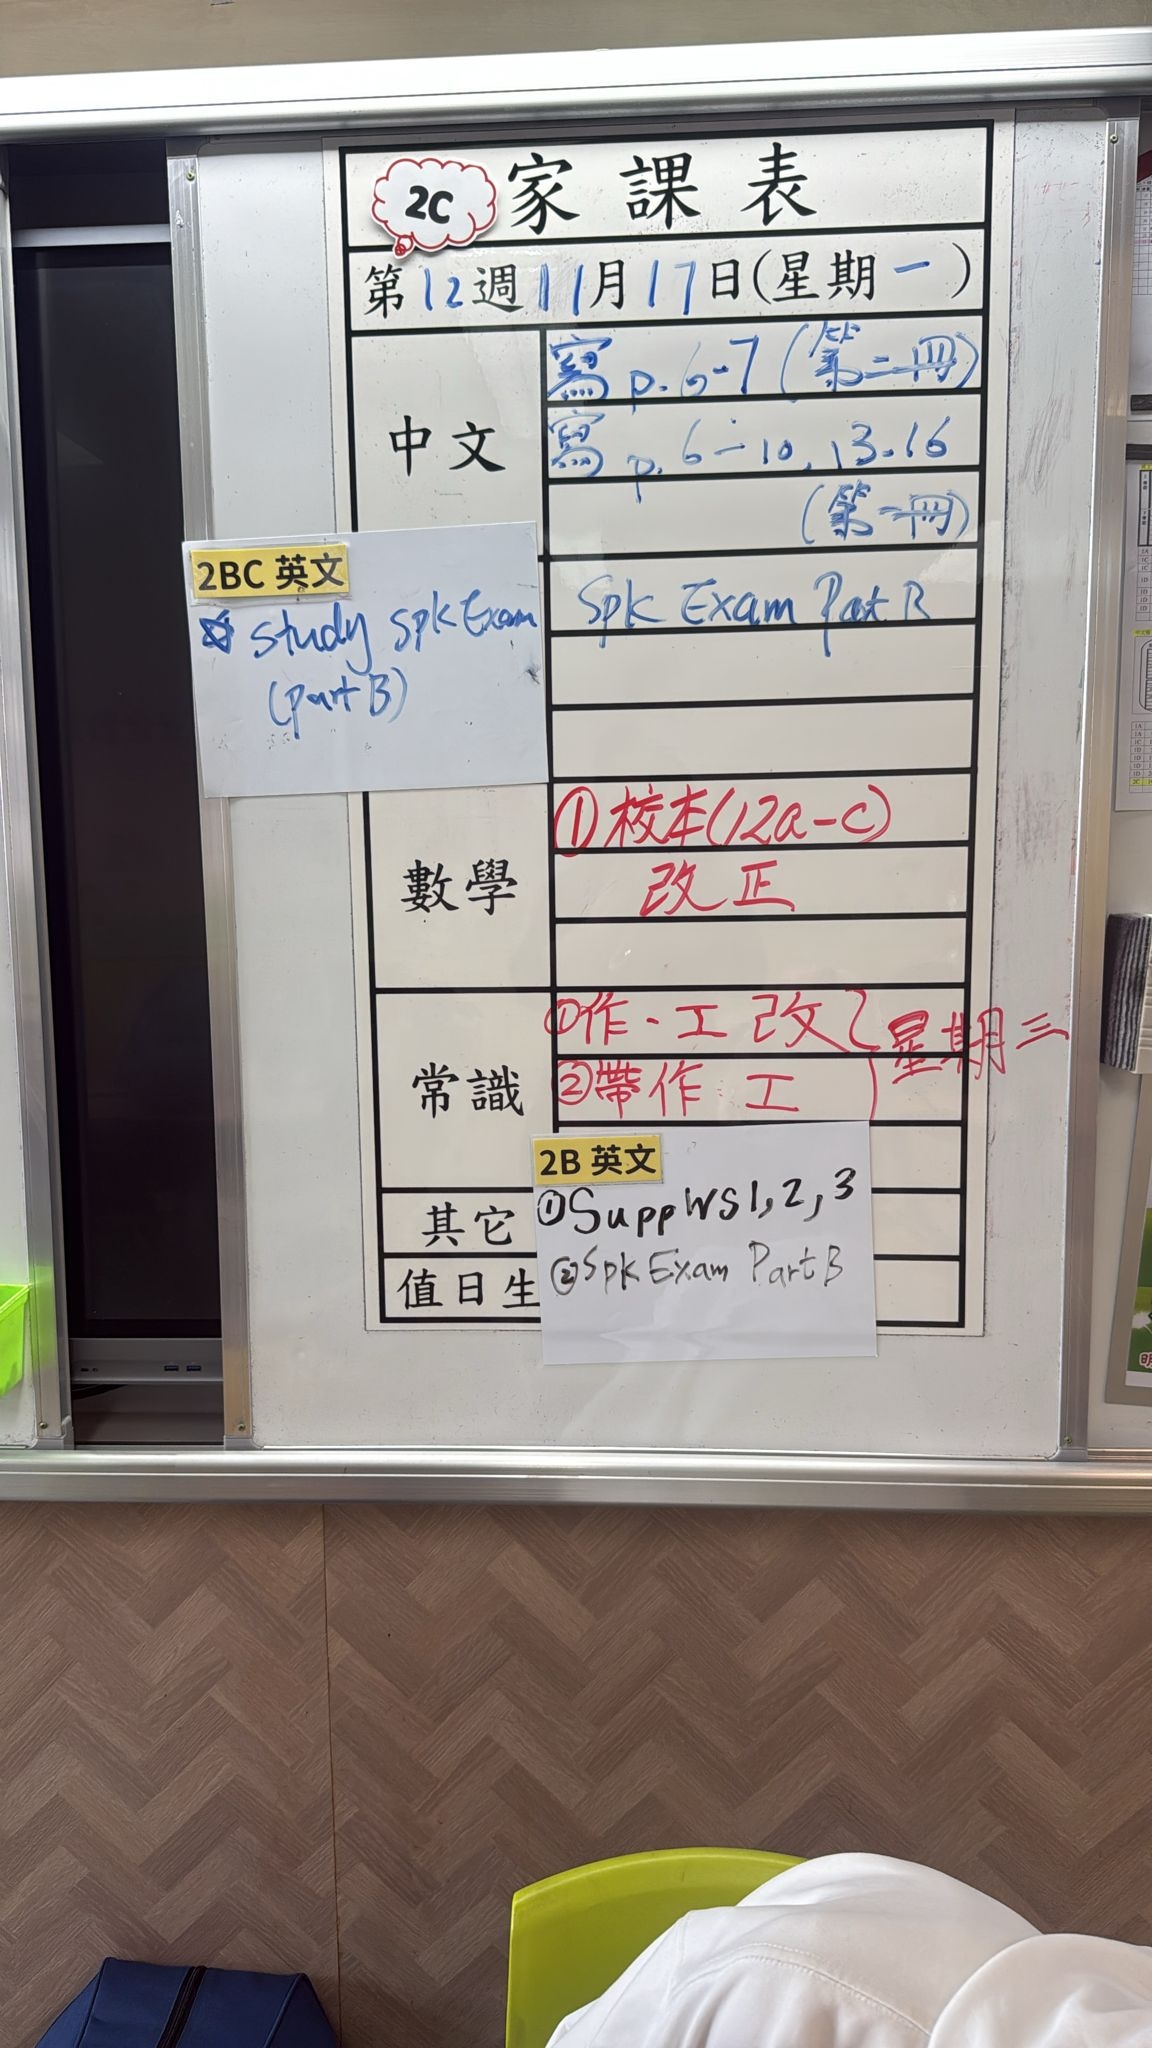 2C 家課表
第12週11月17日(星期一)
中文
寫 p.6-7(第二冊)
寫 p.6-10, 13-16
(第一冊)
2BC 英文
study spk Exam
(part B)
Spk Exam Part B
數學
①校本(12a-c)
改正
常識
①作、工 改
②帶作、工
星期三
其它
值日生
2B 英文
①Supp WS 1, 2, 3
②Spk Exam Part B